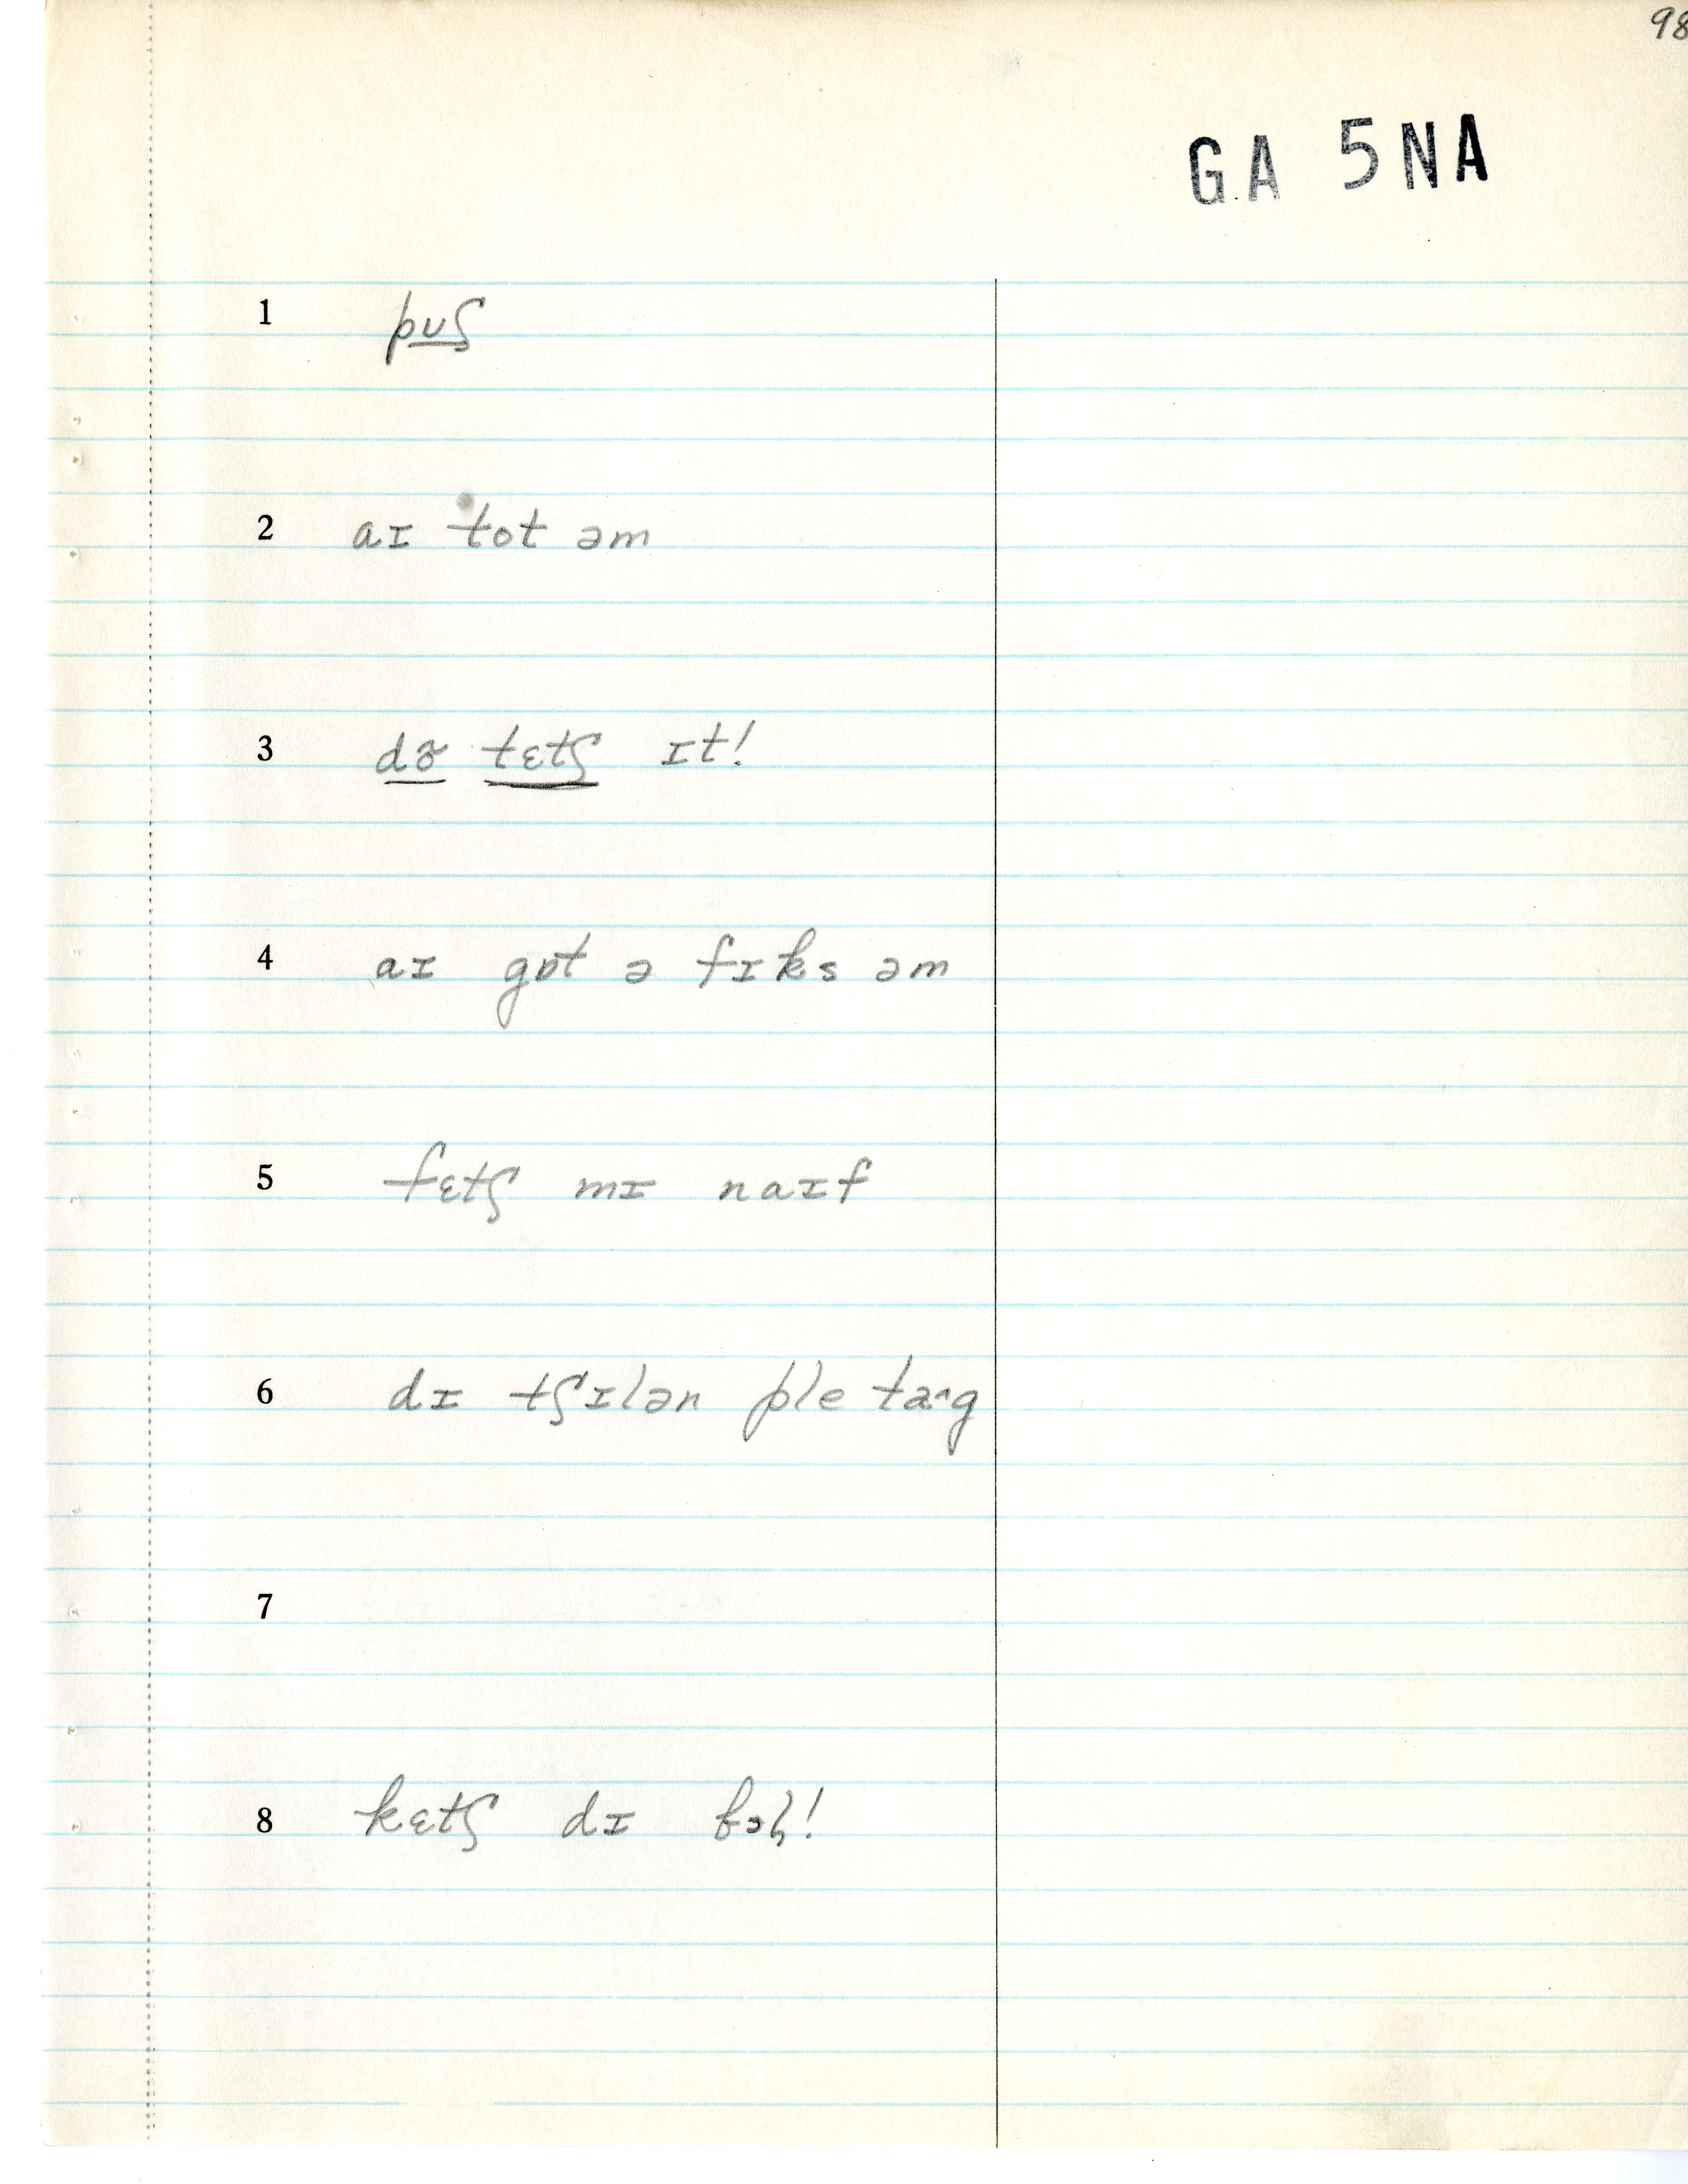 98
GA 5NA
1 pʊʃ
2 aɪ tot əm
3 dõ tɛtʃ ɪt!
4 aɪ gɒt ə fɪks əm
5 fɛtʃ mɪ naɪf
6 dɪ tʃɪlən ple ta˄g
7
8 kɛtʃ dɪ